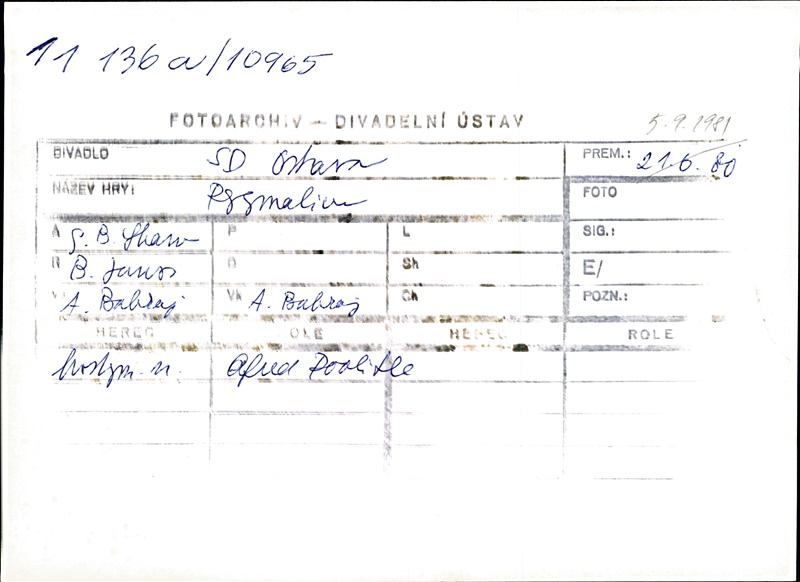 11 136 a/10965
FOTOARCHIV – DIVADELNÍ ÚSTAV
5.9.1981
DIVADLO SD Ostrava PREM.: 21.6.80
NÁZEV HRY: Pygmalion FOTO
A G. B. Shaw P L SIG.:
R B. Janos D Sh E/
V A. Babraj Vk A. Babraj Ch POZN.:
HEREC OLE HEREC ROLE
kostým. n. Alfred Doolitle